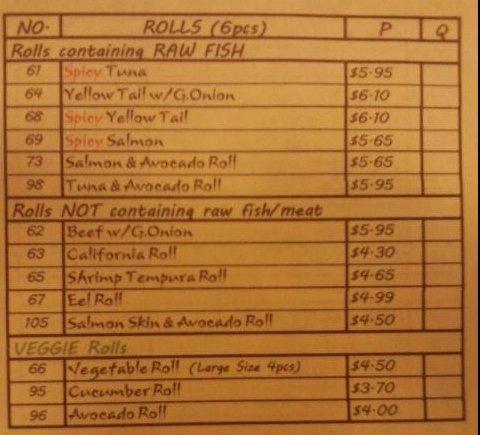 NO. ROLLS (6pcs) P Q
Rolls containing RAW FISH
61 Spicy Tuna $5.95
64 Yellow Tail w/G.Onion $6.10
68 Spicy Yellow Tail $6.10
69 Spicy Salmon $5.65
73 Salmon & Avocado Roll $5.65
98 Tuna & Avocado Roll $5.95
Rolls NOT containing raw fish/meat
62 Beef w/G.Onion $5.95
63 California Roll $4.30
65 Shrimp Tempura Roll $4.65
67 Eel Roll $4.99
105 Salmon Skin & Avocado Roll $4.50
VEGGIE Rolls
66 Vegetable Roll (Large Size 4pcs) $4.50
95 Cucumber Roll $3.70
96 Avocado Roll $4.00